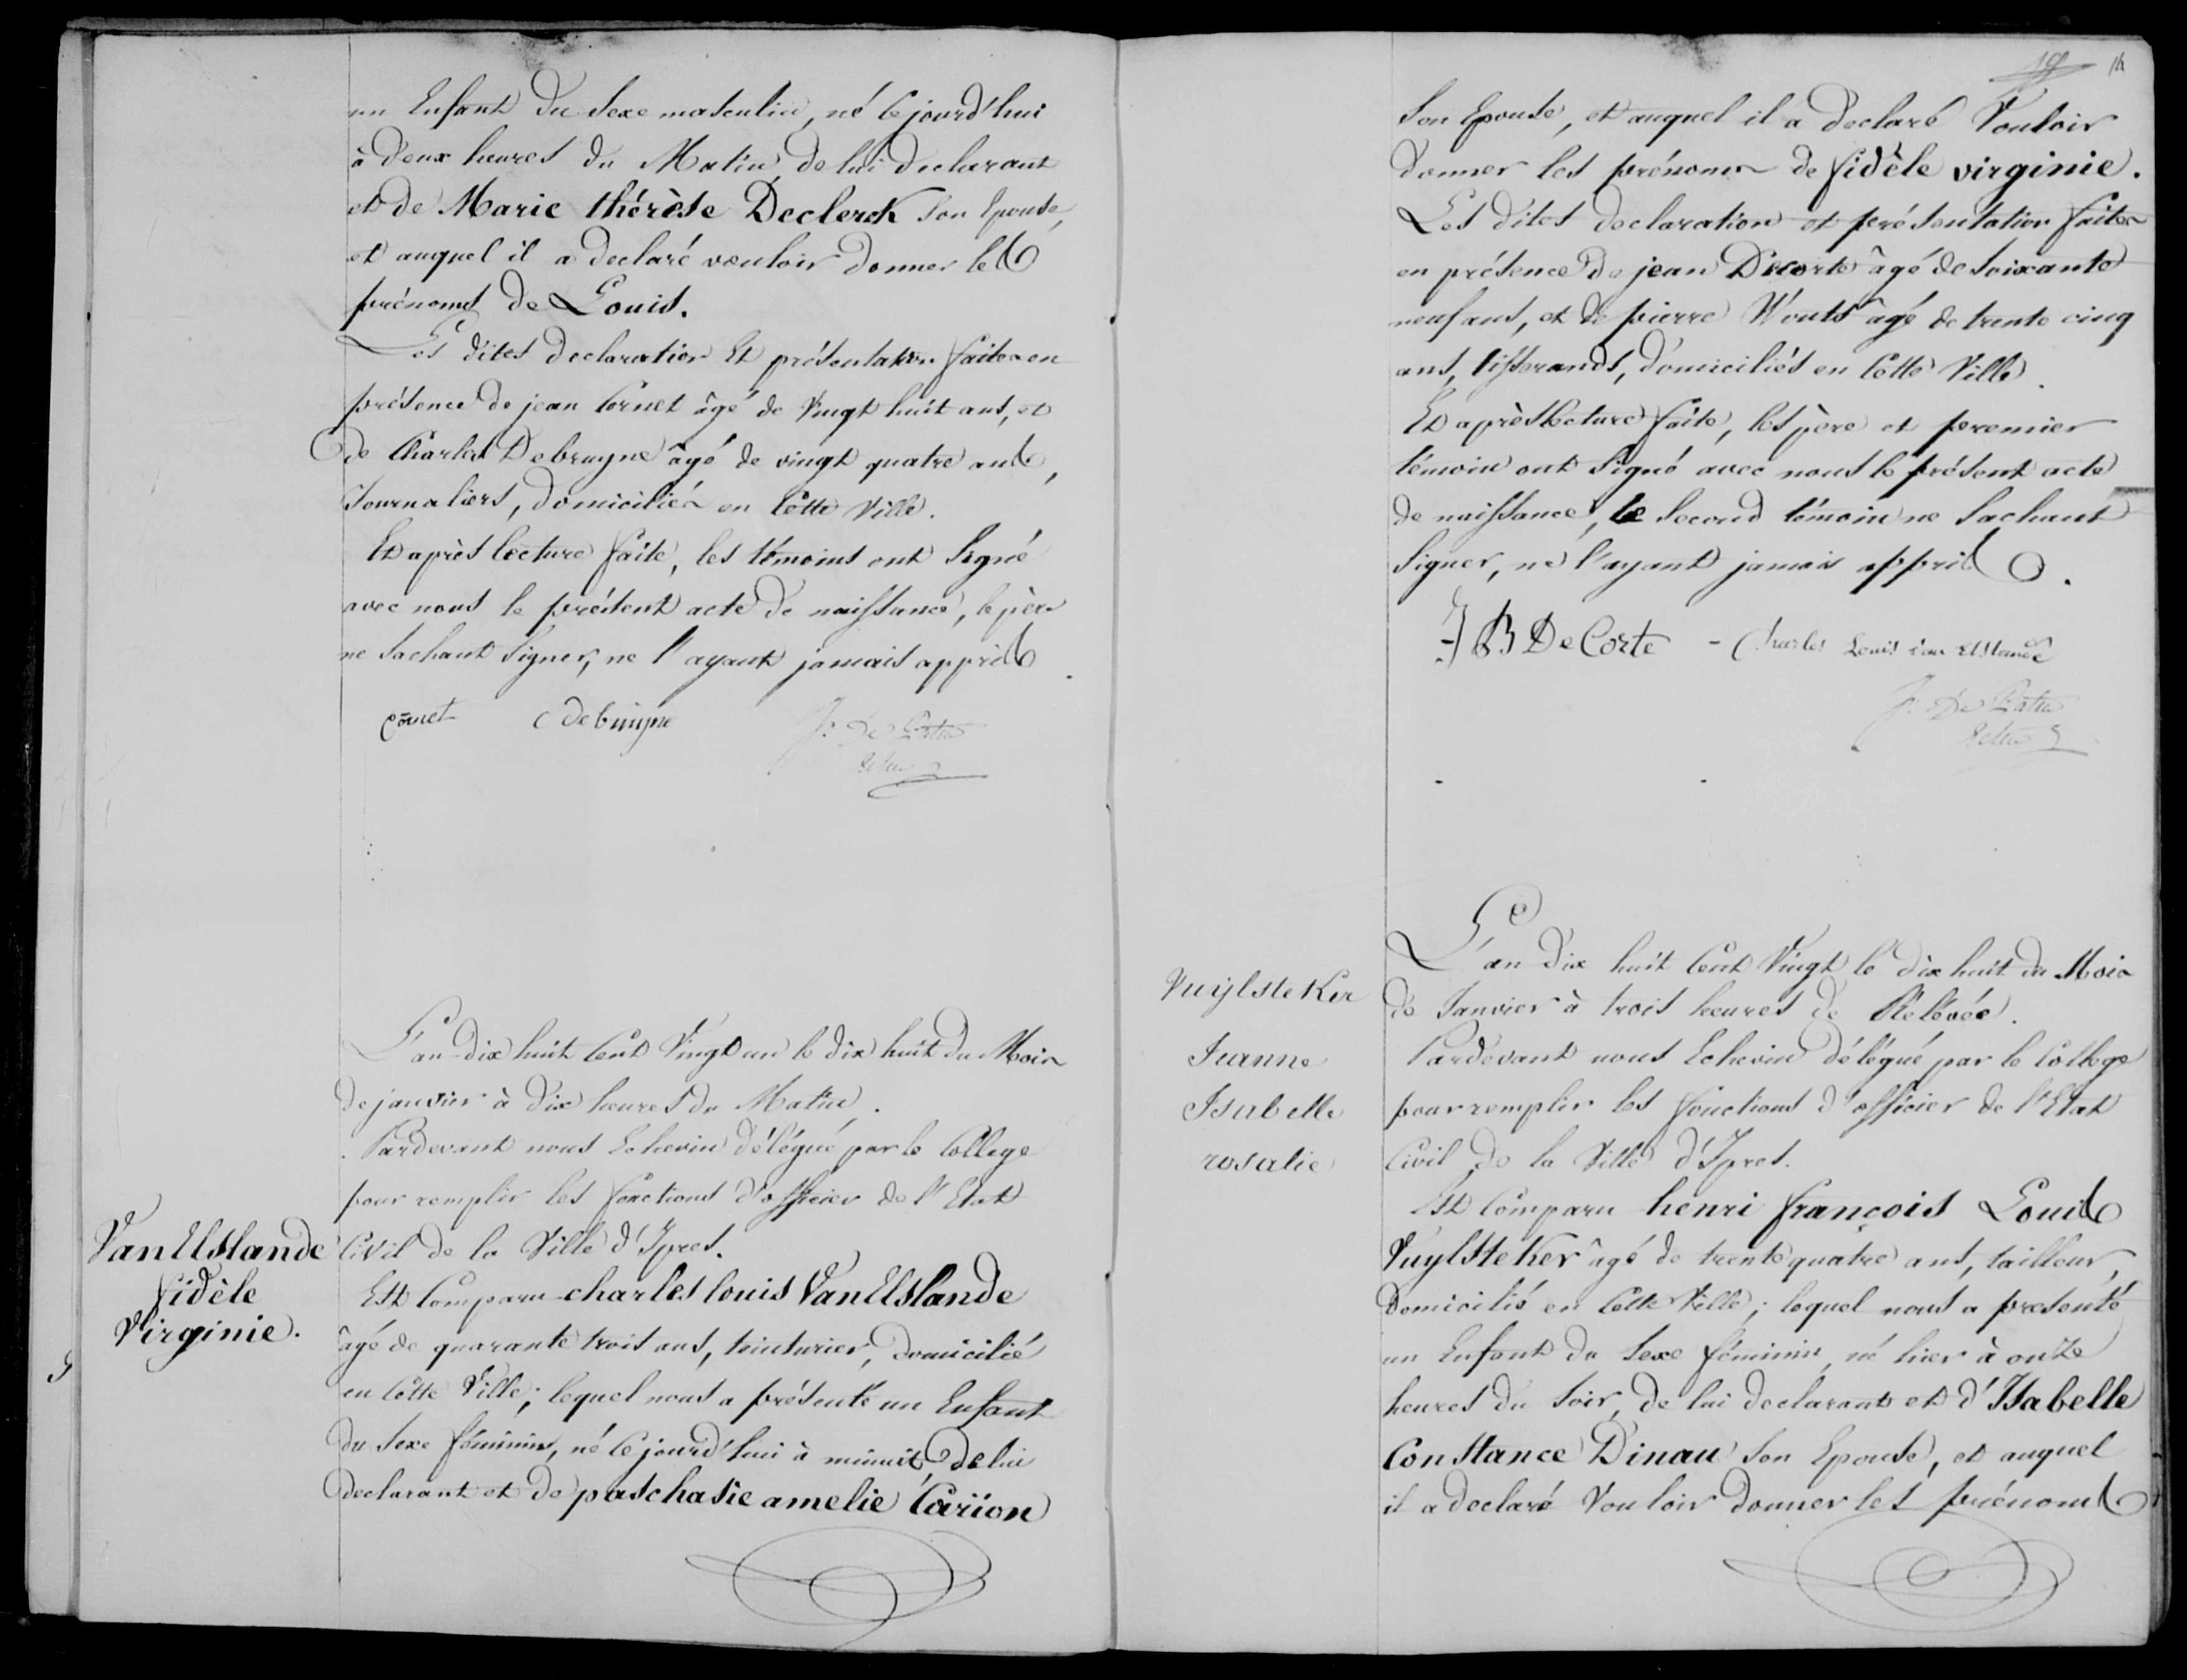 un Enfant du Sexe masculin, né cejourd'hui
à deux heures du Matin, de lui declarant
et de Marie thérèse Declerck son Epouse,
et auquel il a declaré vouloir donner les
prénoms de Louis.
Les dites declaration et présentation faites en
présence de jean Cornet âgé de Vingt huit ans, et
de Charles Debruyne âgé de vingt quatre ans,
Journaliers, domiciliés en Cette Ville.
Et après lecture faite, les témoins ont Signé
avec nous le présent acte de naissance, le père
ne Sachant Signer, ne l'ayant jamais appris.
Cornet C debruyne
L'an dix huit Cent Vingt un le dix huit du Mois
de janvier à dix heures du Matin.
Pardevant nous Echevin délégué par le College
pour remplir les fonctions d'officier de l'Etat
Civil de la Ville d'Ipres.
VanElslande
fidèle
Virginie.
Est Comparu charles louis VanElslande
âgé de quarante trois ans, teinturier, domicilié
en Cette Ville; lequel nous a présenté un Enfant
du Sexe féminin, né Cejourd'hui à minuit, de lui
declarant et de paschasie amelie Cariion
14
Son Epouse, et auquel il a declaré Vouloir
donner les prénoms de fidèle virginie.
Les dites declaration et présentation faites
en présence de jean Decorte âgé de soixante
neuf ans, et de pierre Wouts âgé de trente cinq
ans, tisserands, domiciliés en Cette Ville.
Et après lecture faite, les père et premier
témoin ont Signé avec nous le présent acte
de naissance, le Second témoin ne Sachant
Signer, ne l'ayant jamais appris.
J B DeCorte - Charles Louis van Elslande
Vuylsteker
Jeanne
Isabelle
rosalie
L'an dix huit Cent Vingt le dix huit du Mois
de Janvier à trois heures de Relevée.
Pardevant nous Echevin délégué par le College
pour remplir les fonctions d'officier de l'Etat
Civil de la Ville d'Ipres.
Est Comparu henri françois Louis
Vuylsteker âgé de trente quatre ans, tailleur,
domicilié en Cette Ville; lequel nous a presenté
un Enfant du Sexe féminin, né hier à onze
heures du Soir, de lui declarant et d'Isabelle
Constance Dinau Son Epouse, et auquel
il a declaré Vouloir donner les prénoms